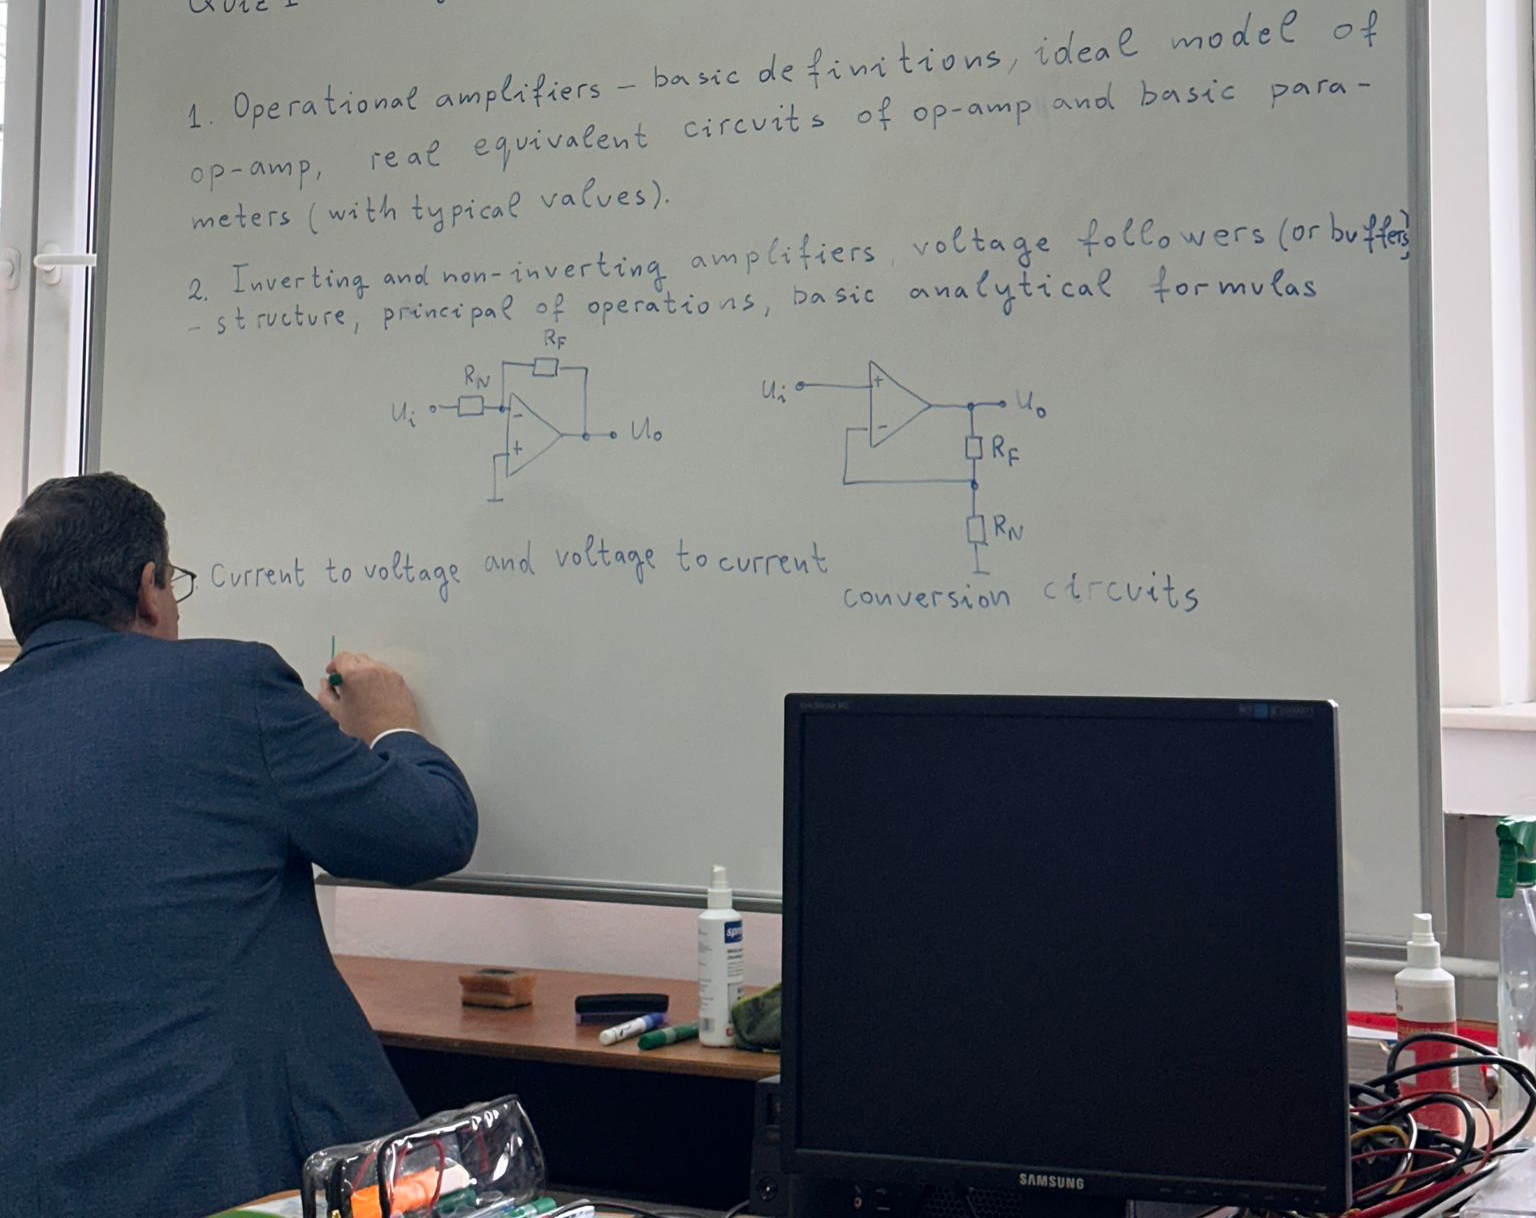 Quiz 1
1. Operational amplifiers – basic definitions, ideal model of
op-amp, real equivalent circuits of op-amp and basic para-
meters (with typical values).
2. Inverting and non-inverting amplifiers, voltage followers (or buffers)
- structure, principal of operations, basic analytical formulas
RF
RN
Ui
-
+
Uo
Ui
+
-
Uo
RF
RN
Current to voltage and voltage to current
conversion circuits
SAMSUNG